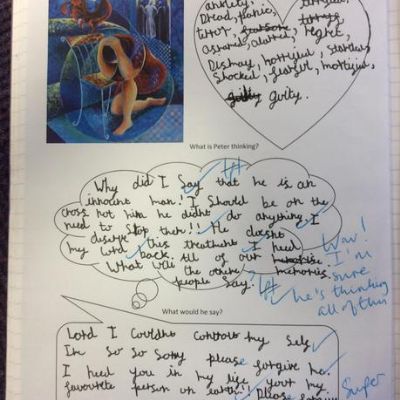 anxiety,
Dread, panic,
terror,
ashamed, alarmed, regret,
Dismay, horrified, startled,
shocked, fearful, mortified,
guilty.
What is Peter thinking?
Why did I say that he is an
innocent man! I should be on the
cross not him he didnt do anything. I
need to stop them!! He doesnt
deserve this treatment I need
my Lord back. All of our memories.
What will the other people say.
Wow!
I'm
sure
he's thinking
all of this
What would he say?
Lord I couldnt controls my self
Im so so sorry please forgive me.
I need you in my life your my
favourite person on earth! Please forgive
Super